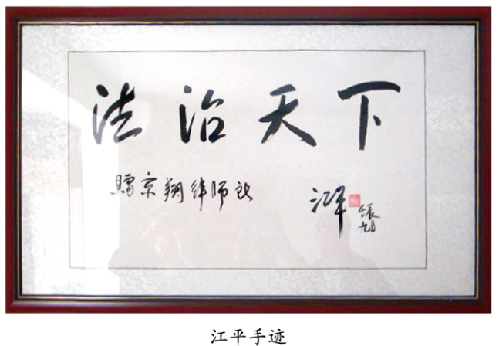 法治天下
赠京翔律师说
江平
江平手迹